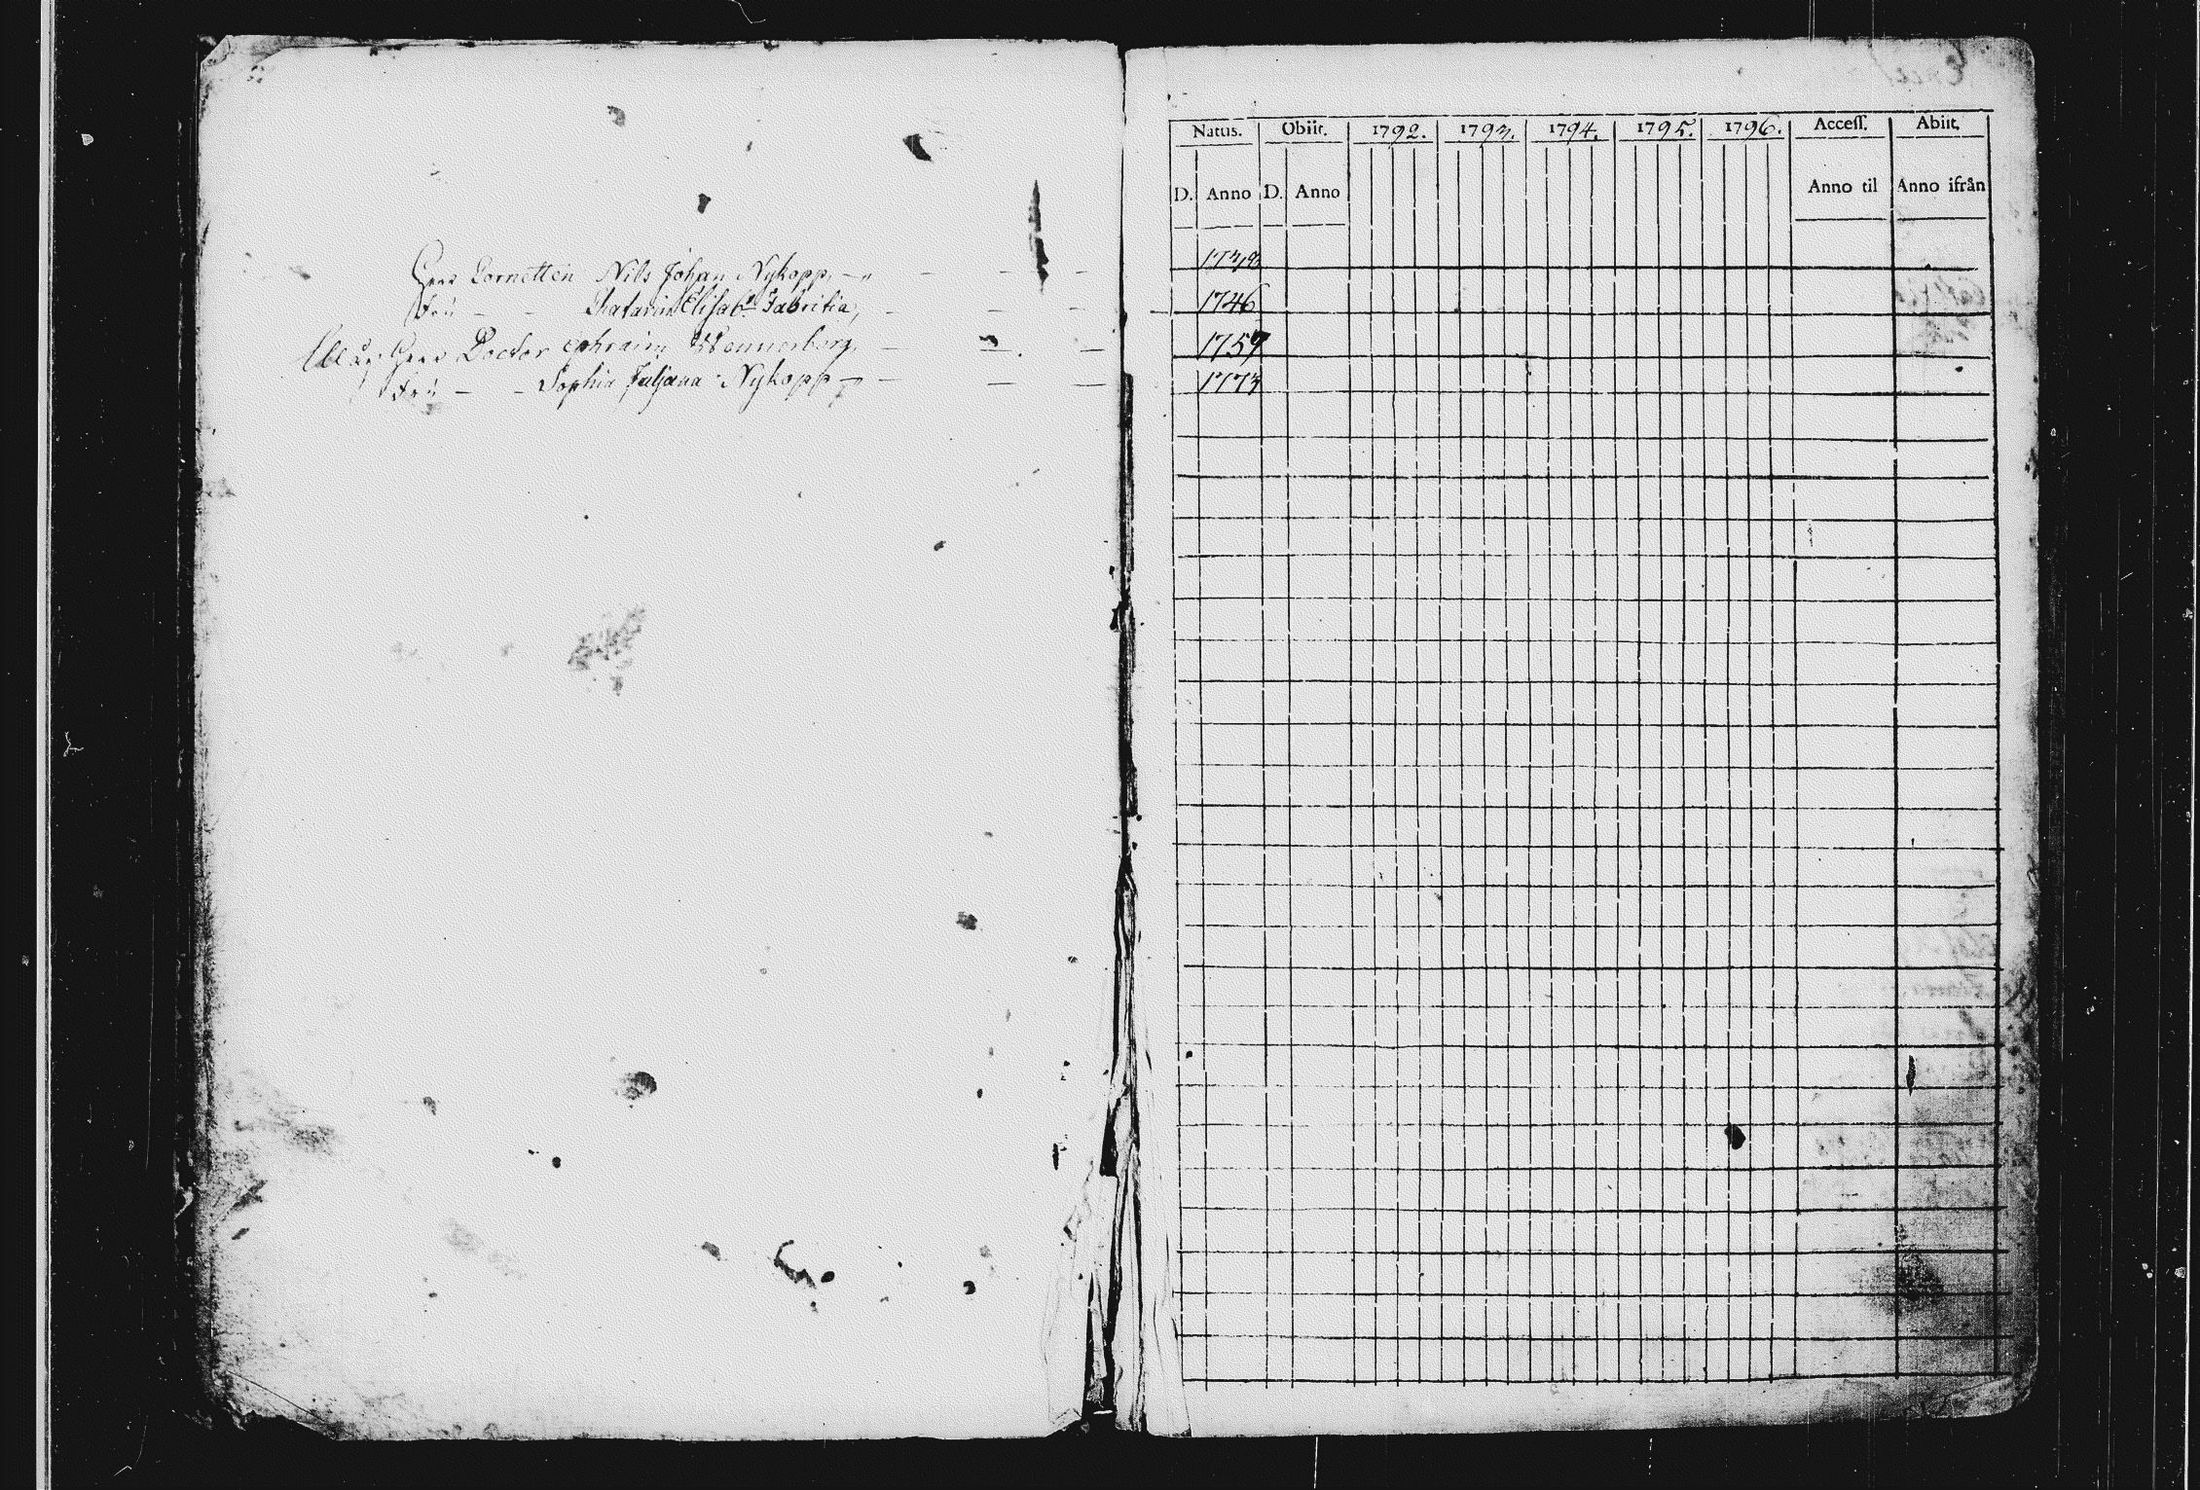 Herr Cornetten Nils Johan Nykopp, — — — —
Fru — — Catarin Elisab:t Fabritia, — — —
Måg Herr Doctor Ephraim Wennerberg, — — —
Fru — — Sophia Juljana Nykopp — — — —
Natus. Obiit. 1792. 1793. 1794. 1795. 1796. Access. Abiit.
D. Anno D. Anno Anno til Anno ifrån
1746
1759
1773